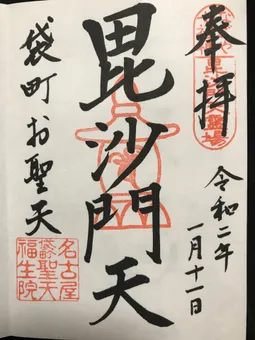 奉拝
毘沙門天
袋町お聖天
令和二年
一月十一日
名古屋
袋町聖天
福生院